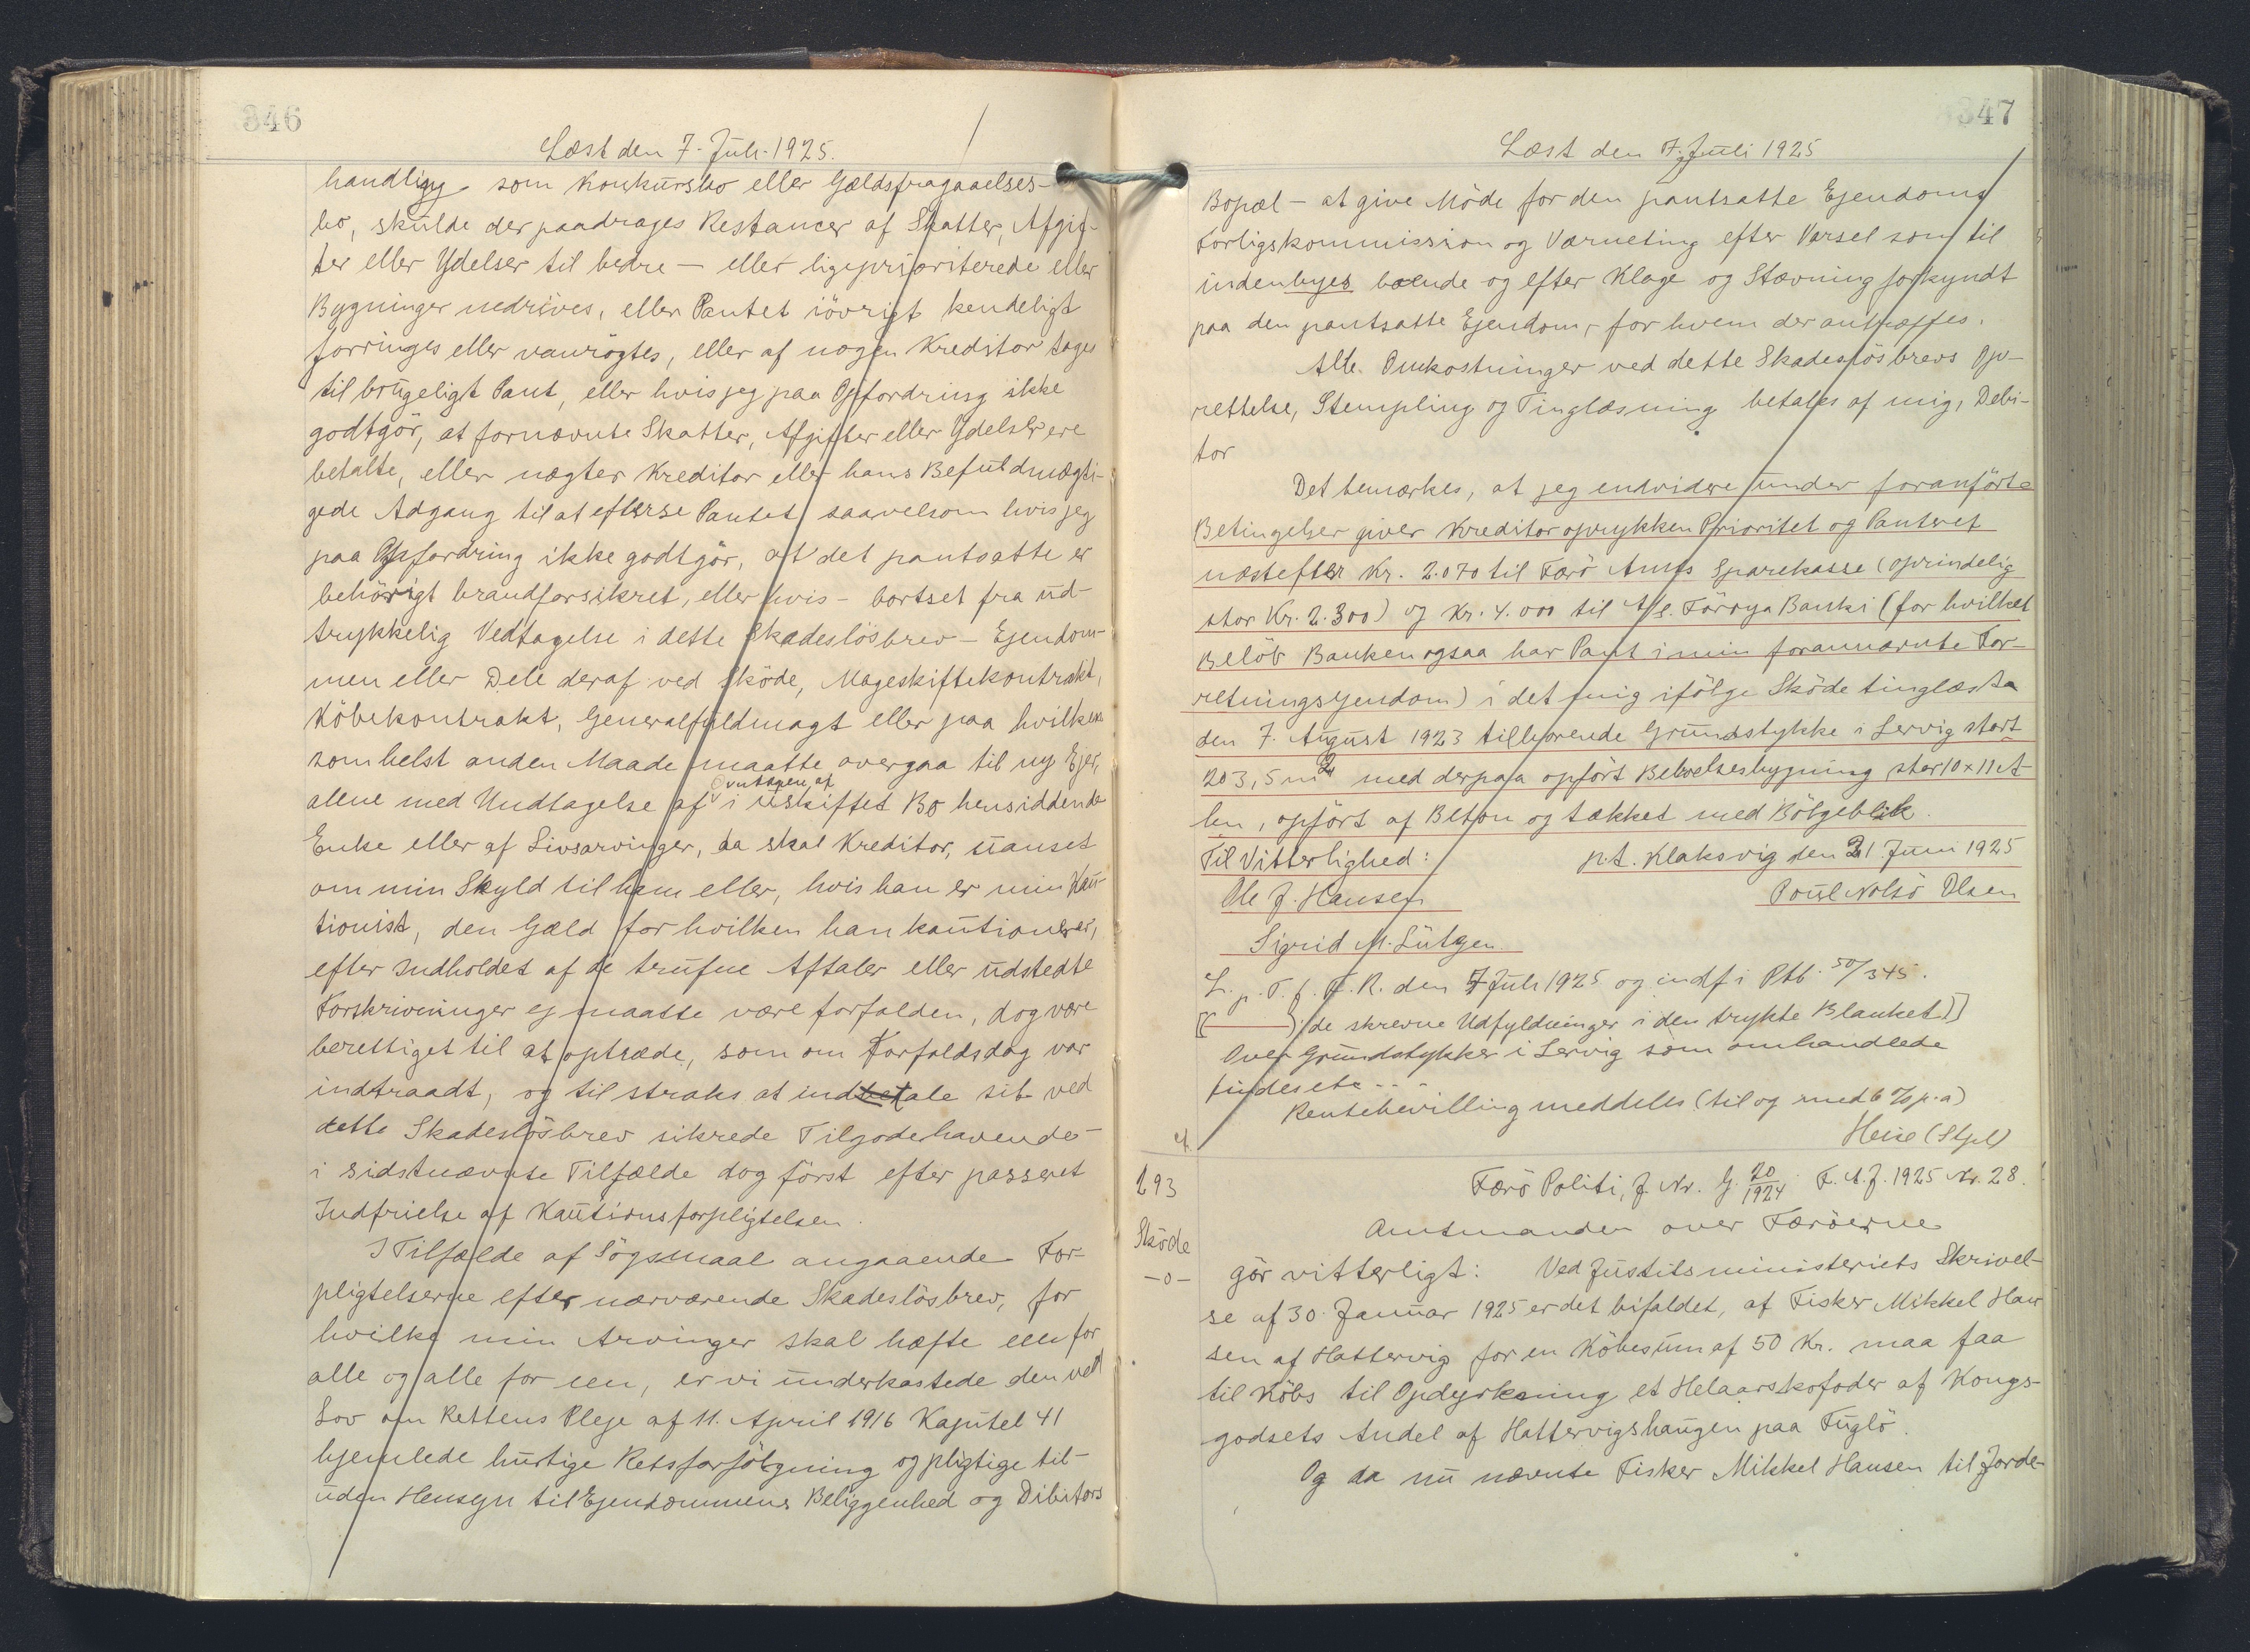 346
Læst den 7. Juli 1925.
handling som Konkursbo eller Gældsfragaaelses-
bo, skulde der paadrages Restancer af Skatter, Afgif-
ter eller Ydelser til bedre — eller ligeprioriterede eller
Bygninger nedrives, eller Pantet iövrigt kendeligt
forringes eller vanrögtes, eller af nogen Kreditor tages
til brugeligt Pant, eller hvis jeg paa Opfordring ikke
godtgör, at fornævnte Skatter, Afgifter eller Ydelser ere
betalte, eller nægter Kreditor eller hans Befuldmægti-
gede Adgang til at efterse Pantet, saavelsom hvis jeg
paa Opfordring ikke godtgör, at det pantsatte er
behörigt brandforsikret, eller hvis – bortset fra ud-
trykkelig Vedtagelse i dette Skadeslösbrev – Ejendom-
men eller Dele deraf ved Sköde, Mageskiftekontrakt,
Köbekontrakt, Generalfuldmagt eller paa hvilken
somhelst anden Maade maatte overgaa til ny Ejer,
alene med Undtagelse af Overtagen af i uskiftet Bo hensiddende
Enke eller af Livsarvinger, da skal Kreditor, uanset
om min Skyld til ham eller, hvis han er min Kau-
tionist, den Gæld for hvilken han kautionerer,
efter Indholdet af de trufne Aftaler eller udstedte
Forskrivninger ej maatte være forfalden, dog være
berettiget til at optræde, som om Forfaldsdag var
indtraadt, og til straks at indtale sit ved
dette Skadeslösbrev sikrede Tilgodehavende –
i sidstnævnte Tilfælde dog först efter passeret
Indfrielse af Kautionsforpligtelsen.
I Tilfælde af Sögsmaal angaaende For-
pligtelserne efter nærværende Skadeslösbrev, for
hvilke min Arvinger skal hæfte een for
alle og alle for een, er vi underkastede den ved
Lov om Rettens Pleje af 11. April 1916 Kapitel 41
hjemlede hurtige Retsforfölgning og pligtige til –
uden Hensyn til Ejendommens Beliggenhed og Debitors
347
Læst den 7. Juli 1925
Bopæl – at give Möde for den pantsatte Ejendoms
Forligskommission og Værneting efter Varsel som til
indenbyes boende og efter Klage og Stævning forkyndt
paa den pantsatte Ejendom, for hvem der antræffes.
Alle Omkostninger ved dette Skadeslösbrevs Op-
rettelse, Stempling og Tinglæsning betales af mig, Debi-
tor
Det bemærkes, at jeg endvidere under foranförte
Betingelser giver Kreditor oprykkende Prioritet og Panteret
næstefter Kr. 2.070 til Færö Amts Sparekasse (oprindelig
stor Kr. 2.300) og Kr. 4.000 til A/S. Förroya Banki (for hvilket
Belöb Banken ogsaa har Pant i min forannævnte For-
retningsejendom) i det mig ifölge Sköde tinglæst
den 7. August 1923 tilhörende Grundstykke i Lervig stort
203,5 m2 med derpaa opfört Beboelsesbygning stor 10 x 11 A-
len, opfört af Beton og tækket med Bölgeblik.
Til Vitterlighed: p.t. Klaksvig den 21 Juni 1925
Ole J. Hansen Poul Nolsö Olsen
Sigrid M. Lützen.
L. p. T. f. F. R. den 7 Juli 1925 og indf i Ptb. 50/345.
[( ) de skrevne Udfyldninger i den trykte Blanket)]
Over Grundstykker i Lervig som omhandlede
findes etc. - - -
Rentebevilling meddeles (til og med 6 % p.a)
Heise (Stpl)
193
Færö Politi, J. Nr. G. 20/1924 F. A. J. 1925 Nr. 28.
Sköde
-o-
Amtmanden over Færöerne
gör vitterligt: Ved Justitsministeriets Skrivel-
se af 30. Januar 1925 er det bifaldet, at Fisker Mikkel Han
sen af Hattervig for en Köbesum af 50 Kr. maa faa
til Köbs til Opdyrkning et Helaarskofoder af Kongs-
godsets Andel af Hattervigshaugen paa Fuglö.
Og da nu nævnte Fisker Mikkel Hansen til Jorde-